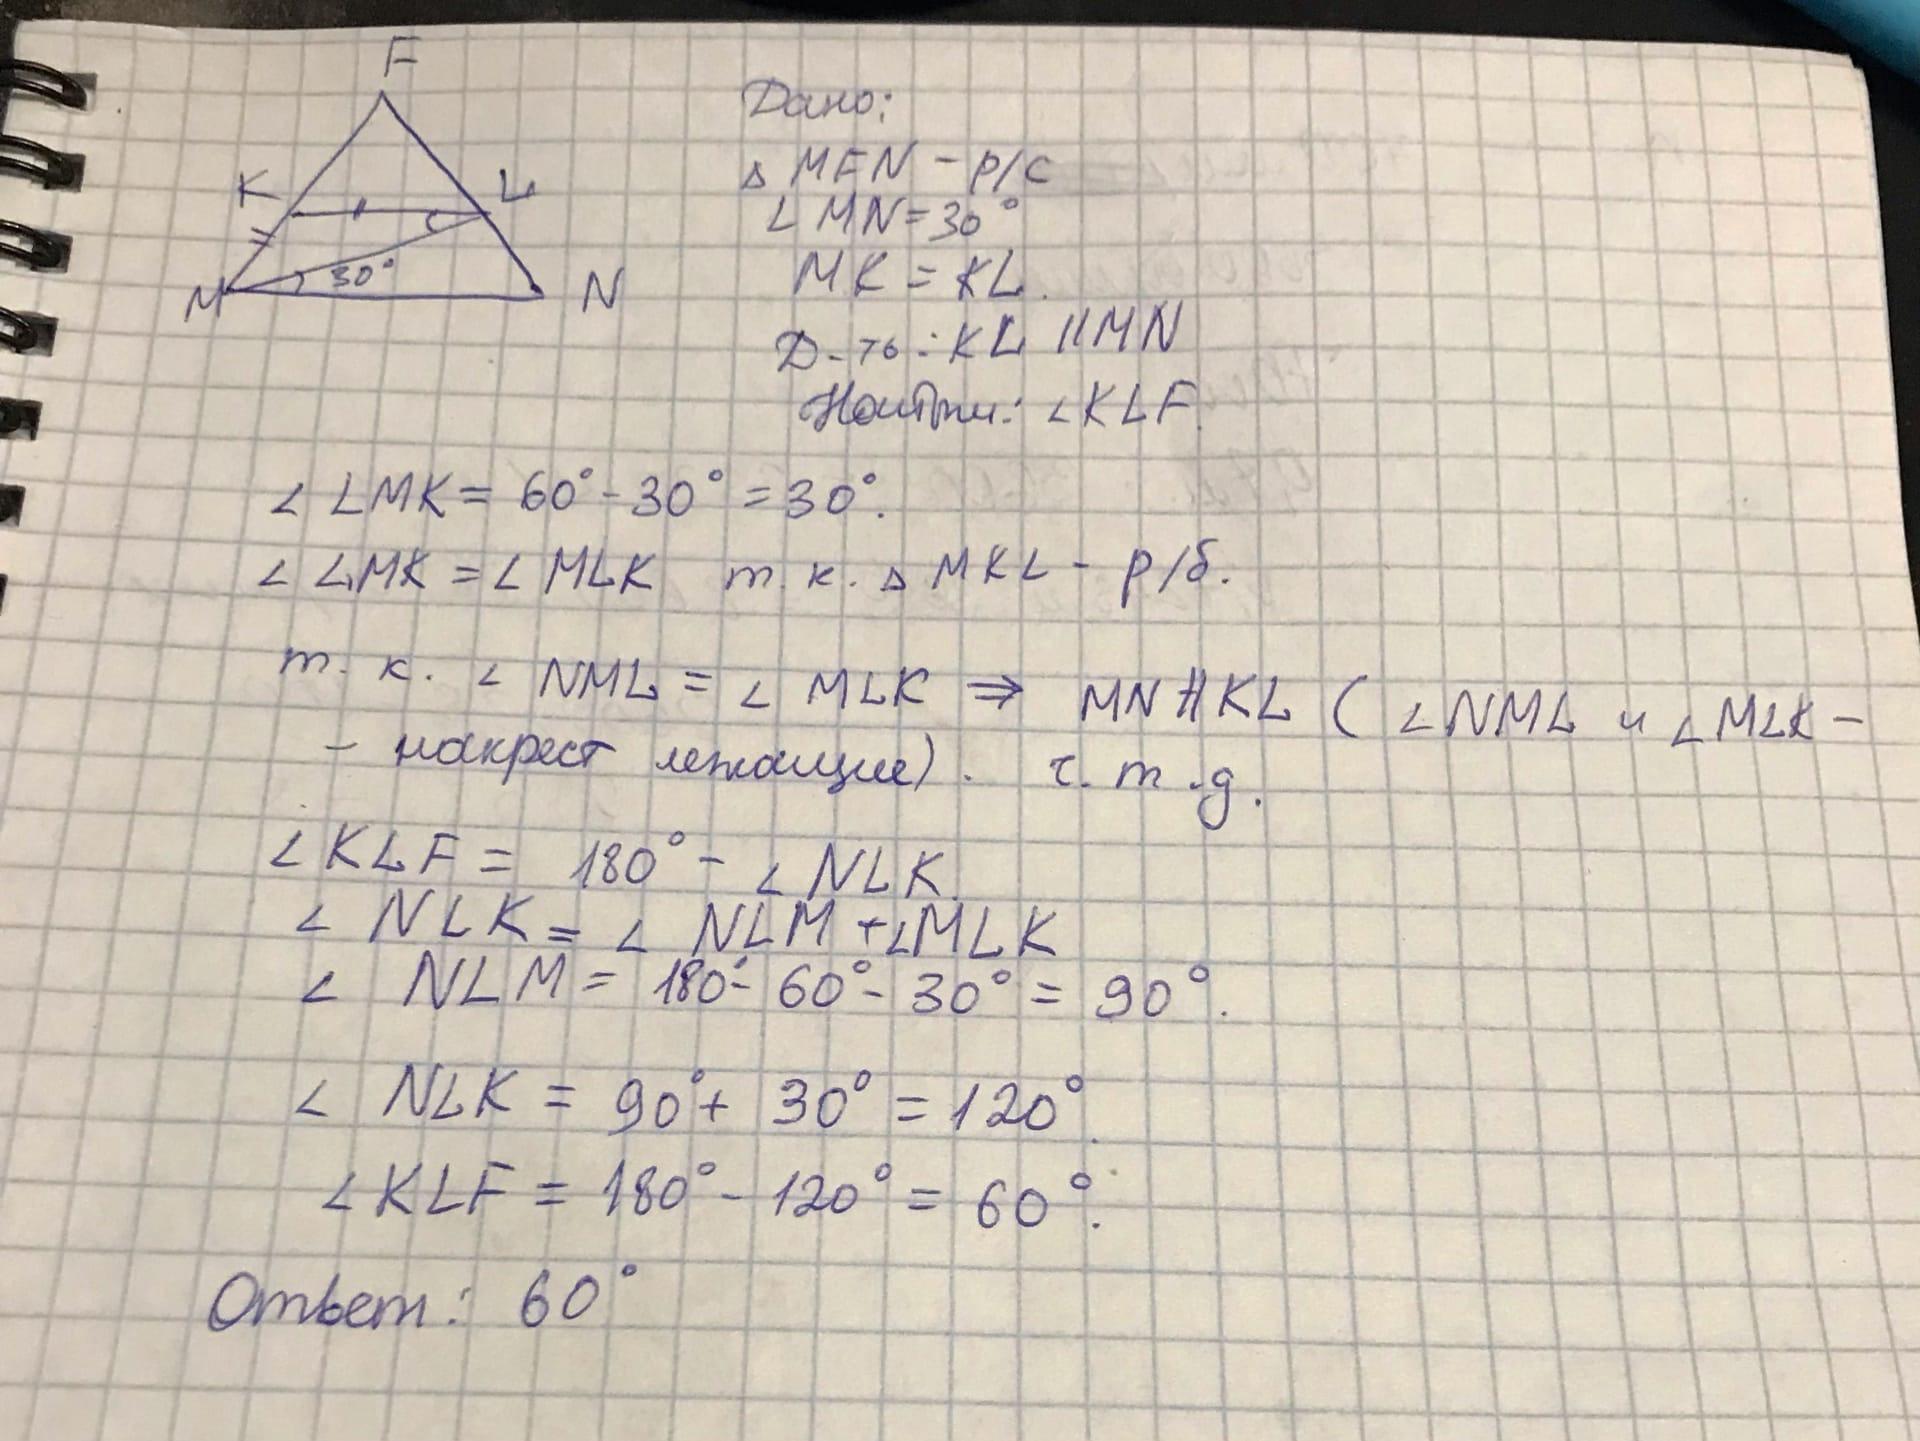 F
K
L
30°
M
N
Дано:
△ MFN - р/с
∠ MN = 30°
MK = KL.
Д-ть: KL || MN
Найти: ∠KLF.
∠ LMK = 60° - 30° = 30°.
∠ LMK = ∠ MLK т. к. △ MKL - р/б.
т. к. ∠ NML = ∠ MLK ⇒ MN || KL ( ∠NML и ∠MLK -
- накрест лежащие). ч. т. д.
∠KLF = 180° - ∠NLK.
∠ NLK = ∠ NLM + ∠MLK
∠ NLM = 180° - 60° - 30° = 90°.
∠ NLK = 90° + 30° = 120°.
∠KLF = 180° - 120° = 60°.
Ответ: 60°